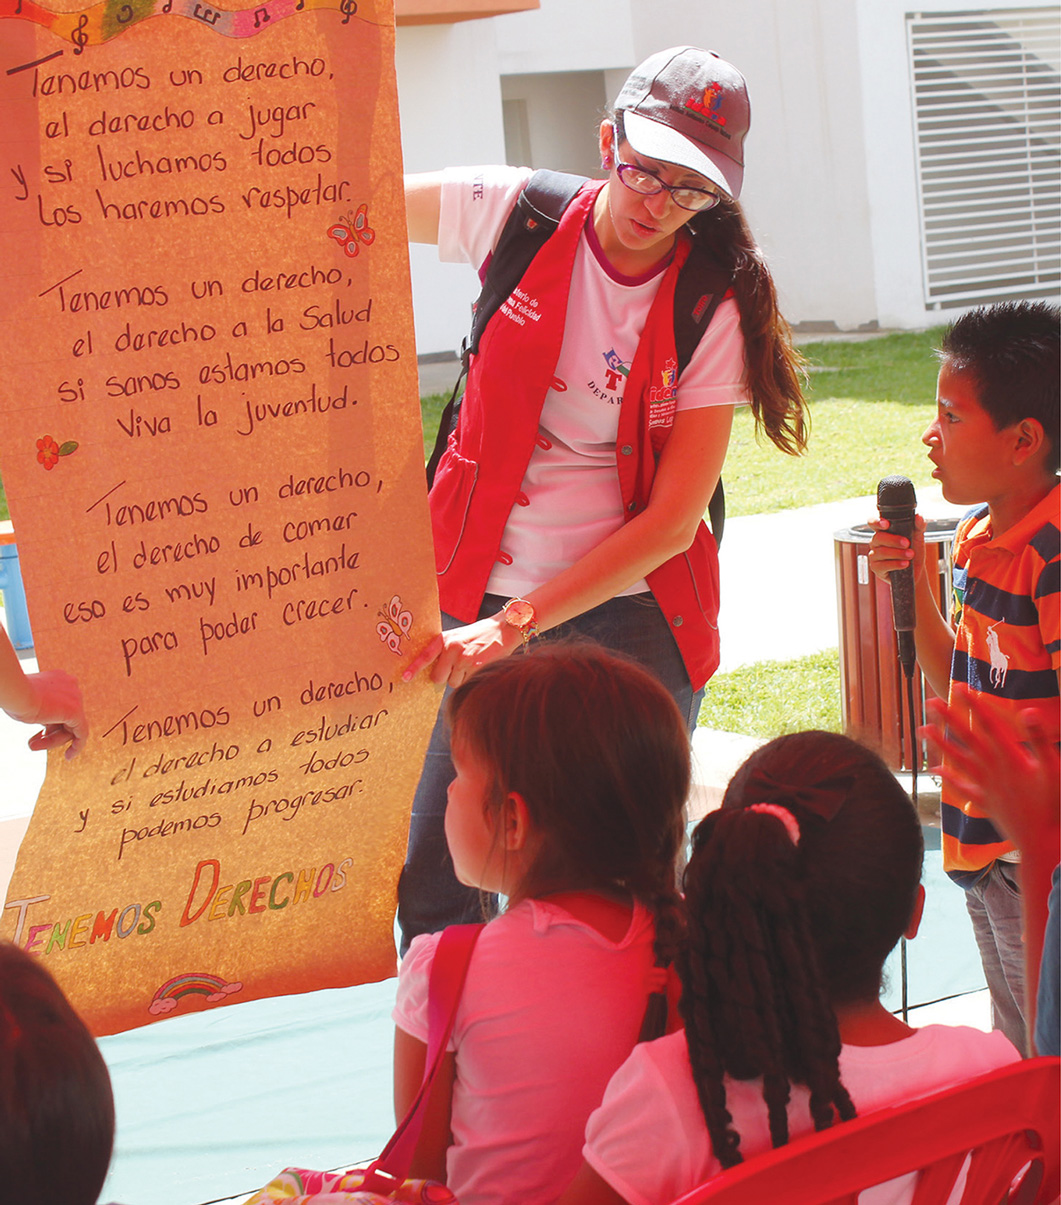 Tenemos un derecho,
el derecho a jugar
y si luchamos todos
los haremos respetar.
Tenemos un derecho,
el derecho a la Salud
si sanos estamos todos
Viva la juventud.
Tenemos un derecho,
el derecho de comer
eso es muy importante
para poder crecer.
Tenemos un derecho,
el derecho a estudiar
y si estudiamos todos
podemos progresar.
TENEMOS DERECHOS
Felicidad
Pueblo